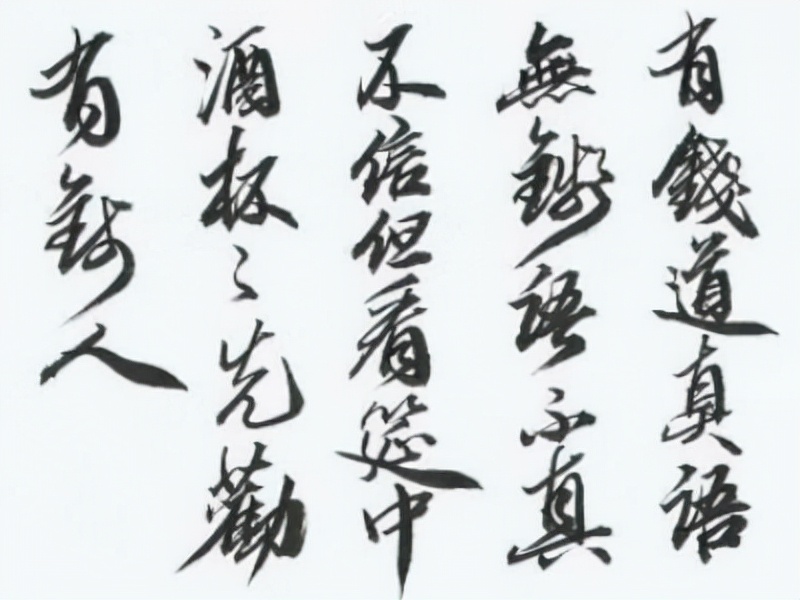 有錢道真語
無錢語不真
不信但看筵中
酒杯々先勸
有錢人